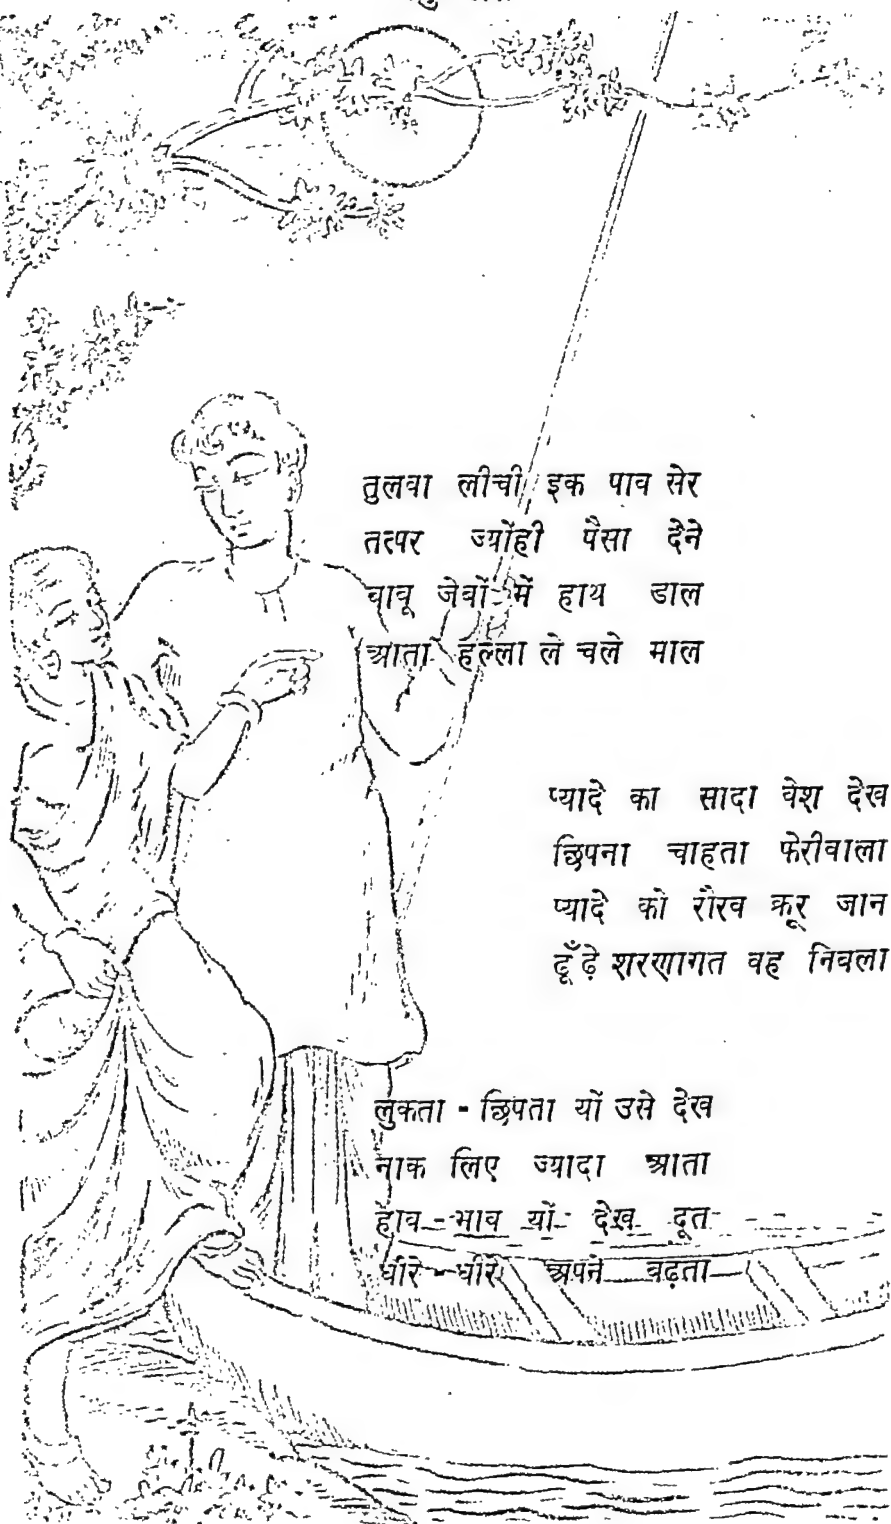 तुलवा लीची इक पाव सेर
तत्पर ज्योंही पैसा देने
बाबू जेबों में हाथ डाल
आता हल्ला ले चले माल
प्यादे का सादा वेश देख
छिपना चाहता फेरीवाला
प्यादे को रौरव क्रूर जान
ढूँढ़े शरणागत वह निबला
लुकता - छिपता यों उसे देख
नाक लिए ज्यादा आता
हाव - भाव यों देख दूत
धीरे - धीरे अपने बढ़ता